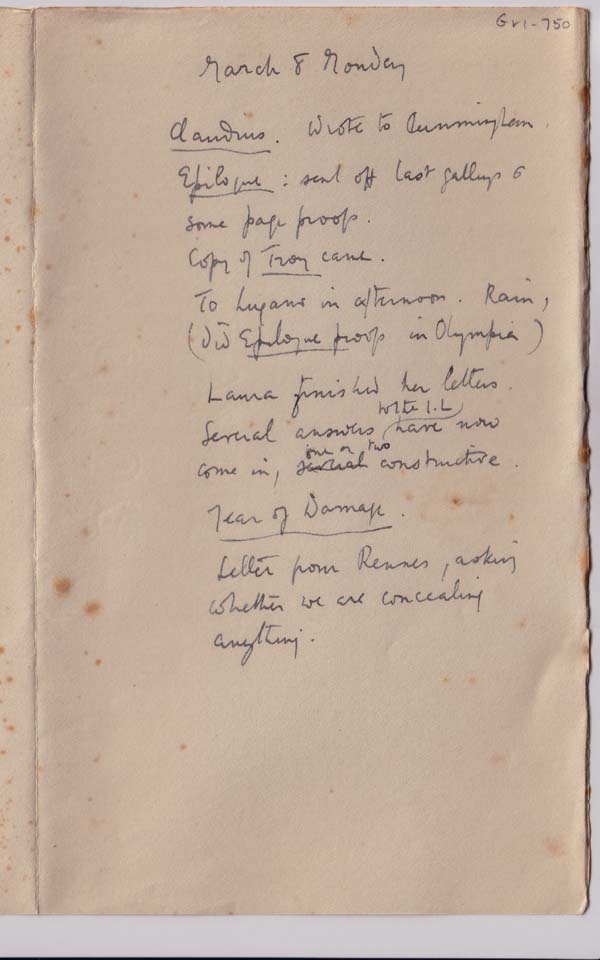 Gr1-750
March 8 Monday
Claudius. Wrote to Cunningham.
Epilogue: sent off last galleys &
some page proofs.
Copy of Troy came.
To Lugano in afternoon. Rain,
(Did Epilogue proofs in Olympia)
Laura finished her letters.
Several answers to the I.L have now
come in, several one or two constructive.
Year of Damage.
Letter from Rennes, asking
whether we are concealing
anything.